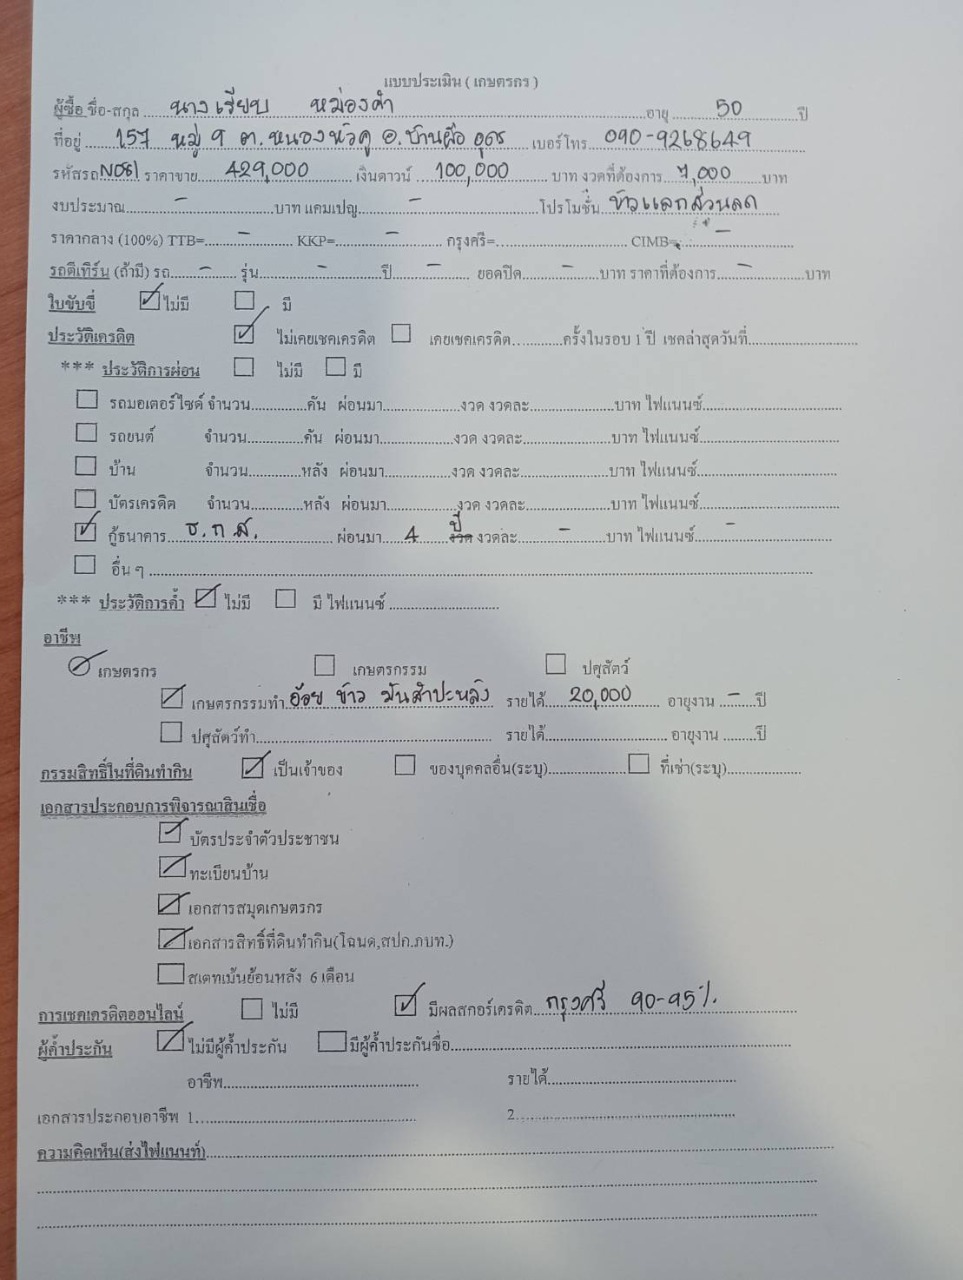 แบบประเมิน ( เกษตรกร )
ผู้ซื้อ ชื่อ-สกุล นางเรียบ หม่องคำ อายุ 50 ปี
ที่อยู่ 157 หมู่ 9 ต.หนองหัวคู อ.บ้านผือ อุดร เบอร์โทร 090-9268649
รหัสรถ N081 ราคาขาย 429,000 เงินดาวน์ 100,000 บาท งวดที่ต้องการ 7,000 บาท
งบประมาณ - บาท แคมเปญ - โปรโมชั่น ข้าวแลกส่วนลด
ราคากลาง (100%) TTB= - KKP= - กรุงศรี= CIMB= -
รถตีเทิร์น (ถ้ามี) รถ - รุ่น - ปี - ยอดปิด - บาท ราคาที่ต้องการ - บาท
ใบขับขี่ ไม่มี มี
ประวัติเครดิต ไม่เคยเชคเครดิต เคยเชคเครดิต ครั้งในรอบ 1 ปี เชคล่าสุดวันที่
*** ประวัติการผ่อน ไม่มี มี
รถมอเตอร์ไซด์ จำนวน คัน ผ่อนมา งวด งวดละ บาท ไฟแนนซ์
รถยนต์ จำนวน คัน ผ่อนมา งวด งวดละ บาท ไฟแนนซ์
บ้าน จำนวน หลัง ผ่อนมา งวด งวดละ บาท ไฟแนนซ์
บัตรเครดิต จำนวน หลัง ผ่อนมา งวด งวดละ บาท ไฟแนนซ์
กู้ธนาคาร ธ.ก.ส. ผ่อนมา 4 ปี งวด งวดละ - บาท ไฟแนนซ์ -
อื่น ๆ
*** ประวัติการค้ำ ไม่มี มี ไฟแนนซ์
อาชีพ
เกษตรกร เกษตรกรรม ปศุสัตว์
เกษตรกรรมทำ อ้อย ข้าว มันสำปะหลัง รายได้ 20,000 อายุงาน - ปี
ปศุสัตว์ทำ รายได้ อายุงาน ปี
กรรมสิทธิ์ในที่ดินทำกิน เป็นเจ้าของ ของบุคคลอื่น(ระบุ) ที่เช่า(ระบุ)
เอกสารประกอบการพิจารณาสินเชื่อ
บัตรประจำตัวประชาชน
ทะเบียนบ้าน
เอกสารสมุดเกษตรกร
เอกสารสิทธิ์ที่ดินทำกิน(โฉนด,สปก.ภบท.)
สเตทเม้นย้อนหลัง 6 เดือน
การเชคเครดิตออนไลน์ ไม่มี มีผลสกอร์เครดิต กรุงศรี 90-95%
ผู้ค้ำประกัน ไม่มีผู้ค้ำประกัน มีผู้ค้ำประกันชื่อ
อาชีพ รายได้
เอกสารประกอบอาชีพ 1. 2.
ความคิดเห็น(ส่งไฟแนนท์)